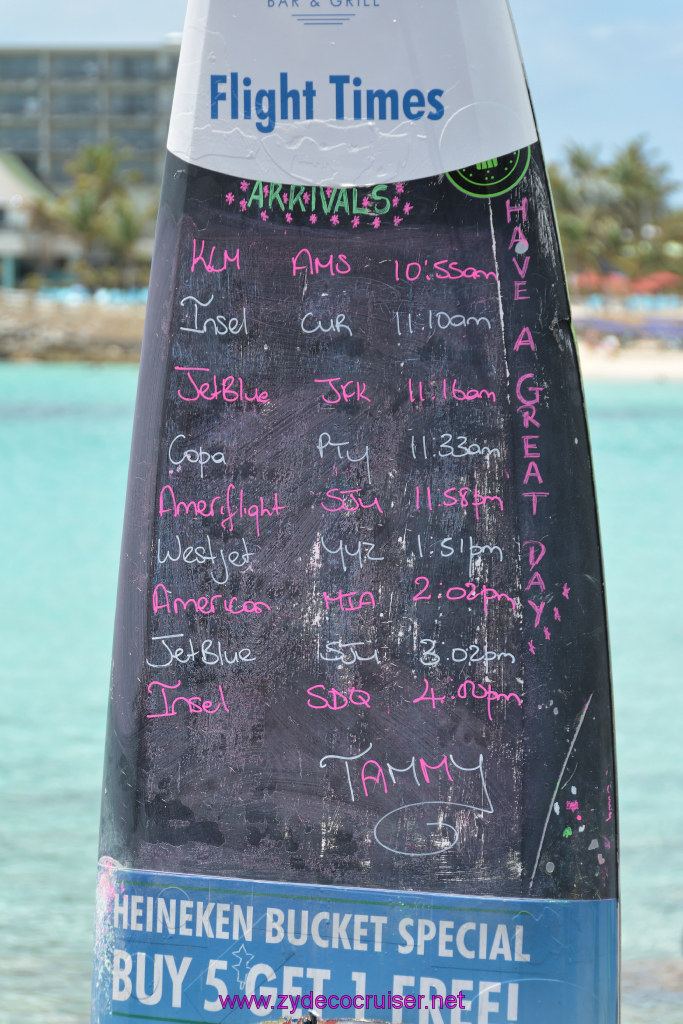 BAR & GRILL
Flight Times
ARRIVALS
KLM AMS 10:55am
Insel CUR 11:10am
JetBlue JFK 11:16am
Copa PTY 11:33am
Ameriflight SJU 11:58pm
Westjet YYZ 1:51pm
American MIA 2:02pm
JetBlue SJU 3:02pm
Insel SDQ 4:00pm
HAVE A GREAT DAY
TAMMY
HEINEKEN BUCKET SPECIAL
BUY 5 GET 1 FREE!
www.zydecocruiser.net